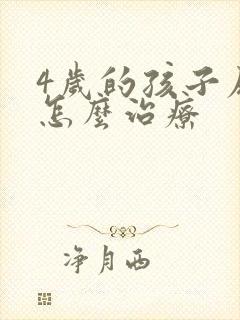 4歲的孩子
怎麼治療
净月西